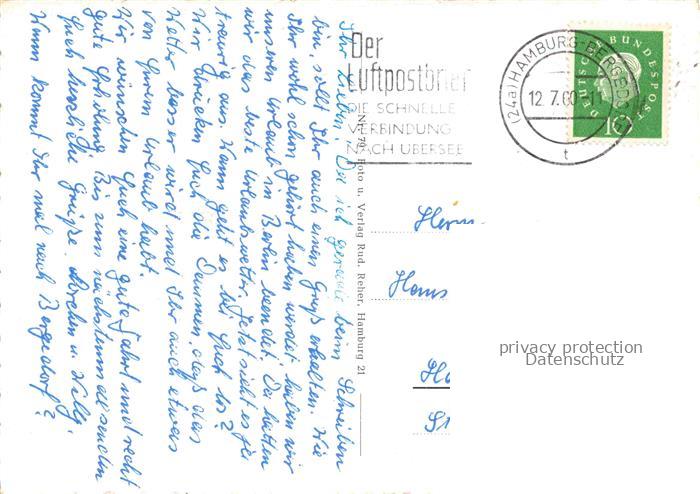 Ihr Lieben! Da ich gerade beim Schreiben
bin, sollt Ihr auch einen Gruß erhalten. Wie
Ihr wohl schon gehört haben werdet, haben wir
unseren Urlaub in Berlin beendet. Da hatten
wir das beste Urlaubswetter. Jetzt sieht es ja
traurig aus. Wann geht es bei Euch los?
Wir drücken Euch die Daumen, daß das
Wetter besser wird und Ihr auch etwas
von Eurem Urlaub habt.
Wir wünschen Euch eine gute Fahrt und recht
gute Erholung. Bis zum nächstenmal senden
Euch herzliche Grüße Lorchen u. Willy.
Wann kommt Ihr mal nach Bergedorf?
Nr. 79 Foto u. Verlag Rud. Reher, Hamburg 21
Der
Luftpostbrief
DIE SCHNELLE
VERBINDUNG
NACH ÜBERSEE
(24a) HAMBURG-BERGEDORF
12.7.60-11
t
DEUTSCHE BUNDESPOST
10
Herrn
Hans
privacy protection
Datenschutz